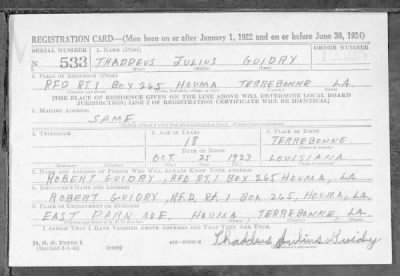 REGISTRATION CARD—(Men born on or after January 1, 1922 and on or before June 30, 1924)
SERIAL NUMBER 1. NAME (Print) ORDER NUMBER
N 533 THADDEUS JULIUS GUIDRY
2. PLACE OF RESIDENCE (Print)
RFD RT.1 BOX 265 HOUMA TERREBONNE LA.
[THE PLACE OF RESIDENCE GIVEN ON THE LINE ABOVE WILL DETERMINE LOCAL BOARD
JURISDICTION; LINE 2 OF REGISTRATION CERTIFICATE WILL BE IDENTICAL]
3. MAILING ADDRESS
SAME
4. TELEPHONE 5. AGE IN YEARS 6. PLACE OF BIRTH
18 TERREBONNE
DATE OF BIRTH
OCT. 25 1923 LOUISIANA
7. NAME AND ADDRESS OF PERSON WHO WILL ALWAYS KNOW YOUR ADDRESS
ROBERT GUIDRY, RFD. RT. 1 BOX 265 HOUMA, LA.
8. EMPLOYER'S NAME AND ADDRESS
ROBERT GUIDRY, R.F.D. RT. 1 BOX 265, HOUMA, LA.
9. PLACE OF EMPLOYMENT OR BUSINESS
EAST PARK AVE. HOUMA, TERREBONNE, LA.
I AFFIRM THAT I HAVE VERIFIED ABOVE ANSWERS AND THAT THEY ARE TRUE.
D. S. S. Form 1
Thaddeus Julius Guidry